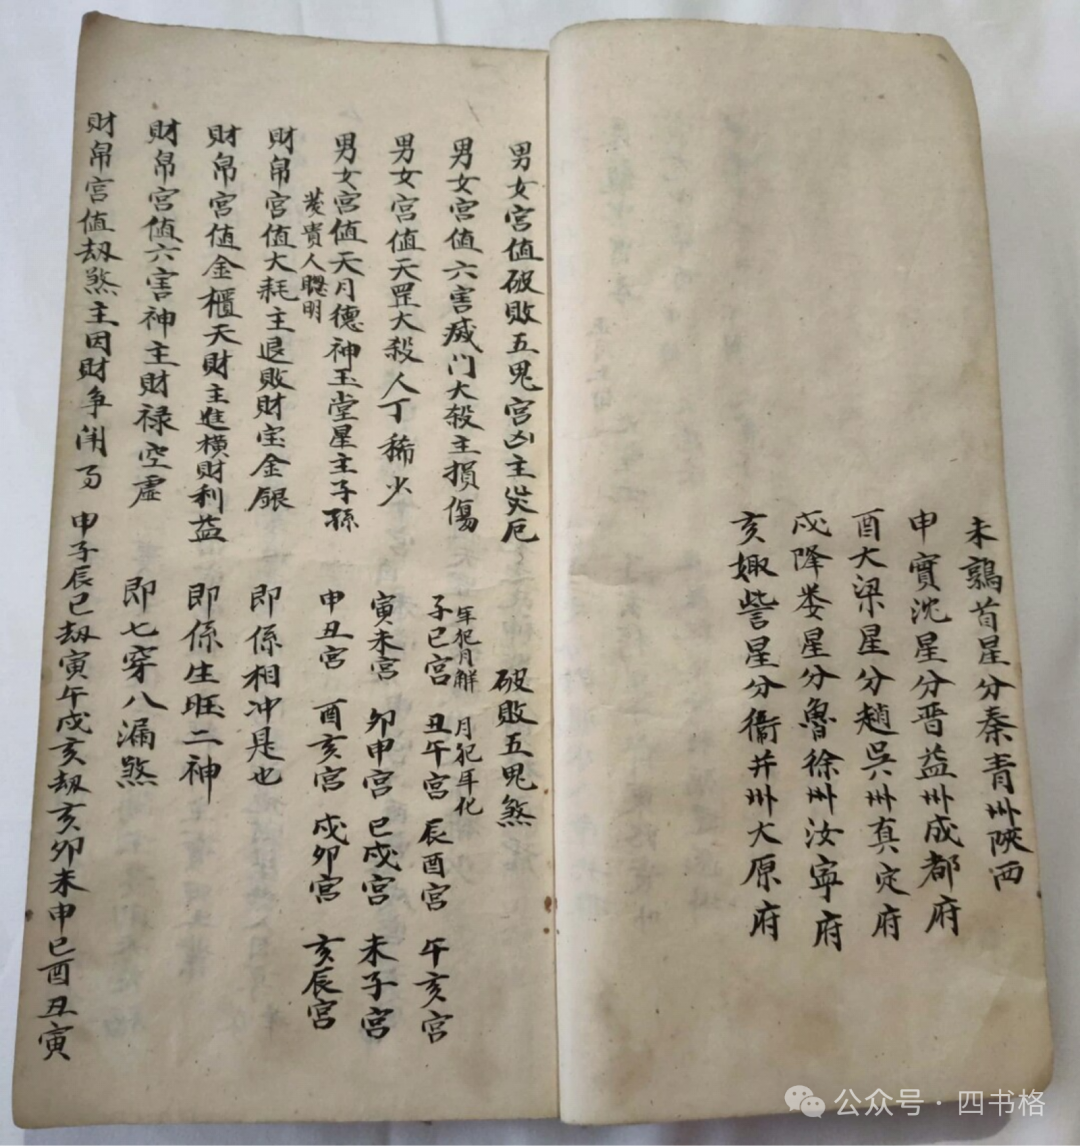 未鶉首星分秦青州陝西
申實沈星分晋益州成都府
酉大梁星分趙吳州真定府
戍降娄星分魯徐州汝寧府
亥娵訾星分衞并州大原府
男女宮值破敗五鬼宮凶主災厄
破敗五鬼煞
男女宮值六害滅门大殺主損傷
年犯月解 月犯年化
子巳宮 丑午宮 辰酉宮 午亥宮
男女宮值天罡大殺人丁稀少
寅未宮 卯申宮 巳戍宮 未子宮
男女宮值天月德神玉堂星主子孫
發貴人聰明
申丑宮 酉亥宮 戍卯宮 亥辰宮
財帛宮值大耗主退敗財宝金銀
即係相冲是也
財帛宮值金櫃天財主進横財利益
即係生旺二神
財帛宮值六害神主財禄空虚
即七穿八漏煞
財帛宮值劫煞主因財争闹
申子辰巳劫寅午戍亥劫亥卯未申巳酉丑寅
公众号·四书格